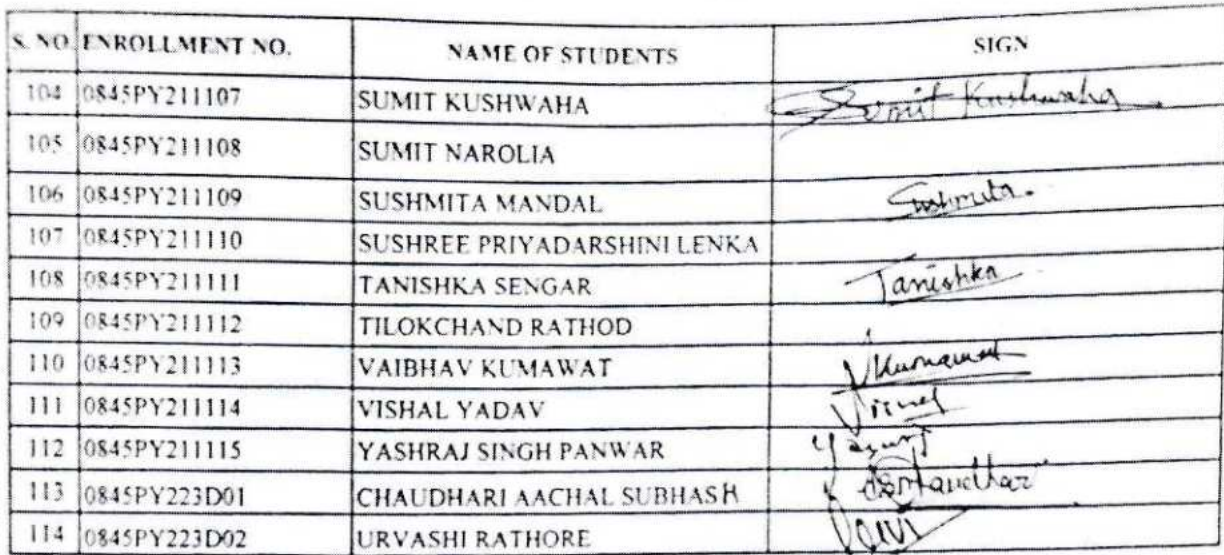 S. NO. ENROLLMENT NO. NAME OF STUDENTS SIGN
104 0845PY211107 SUMIT KUSHWAHA Sumit Kushwaha
105 0845PY211108 SUMIT NAROLIA
106 0845PY211109 SUSHMITA MANDAL Sushmita.
107 0845PY211110 SUSHREE PRIYADARSHINI LENKA
108 0845PY211111 TANISHKA SENGAR Tanishka
109 0845PY211112 TILOKCHAND RATHOD
110 0845PY211113 VAIBHAV KUMAWAT VKumawat
111 0845PY211114 VISHAL YADAV
112 0845PY211115 YASHRAJ SINGH PANWAR
113 0845PY223D01 CHAUDHARI AACHAL SUBHASH
114 0845PY223D02 URVASHI RATHORE